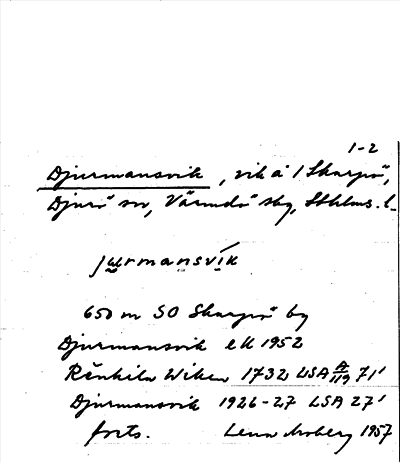 1-2
Djurmansvik, vik å 1 Skarpö,
Djurö sn, Värmdö skg, Sthlms. l.
jurmansvík
650 m SO Skarpö by
Djurmansvik ek 1952
Wiken 1732 LSA A/119 71'
Djurmansvik 1926-27 LSA 27'
forts. Lena Moberg 1957